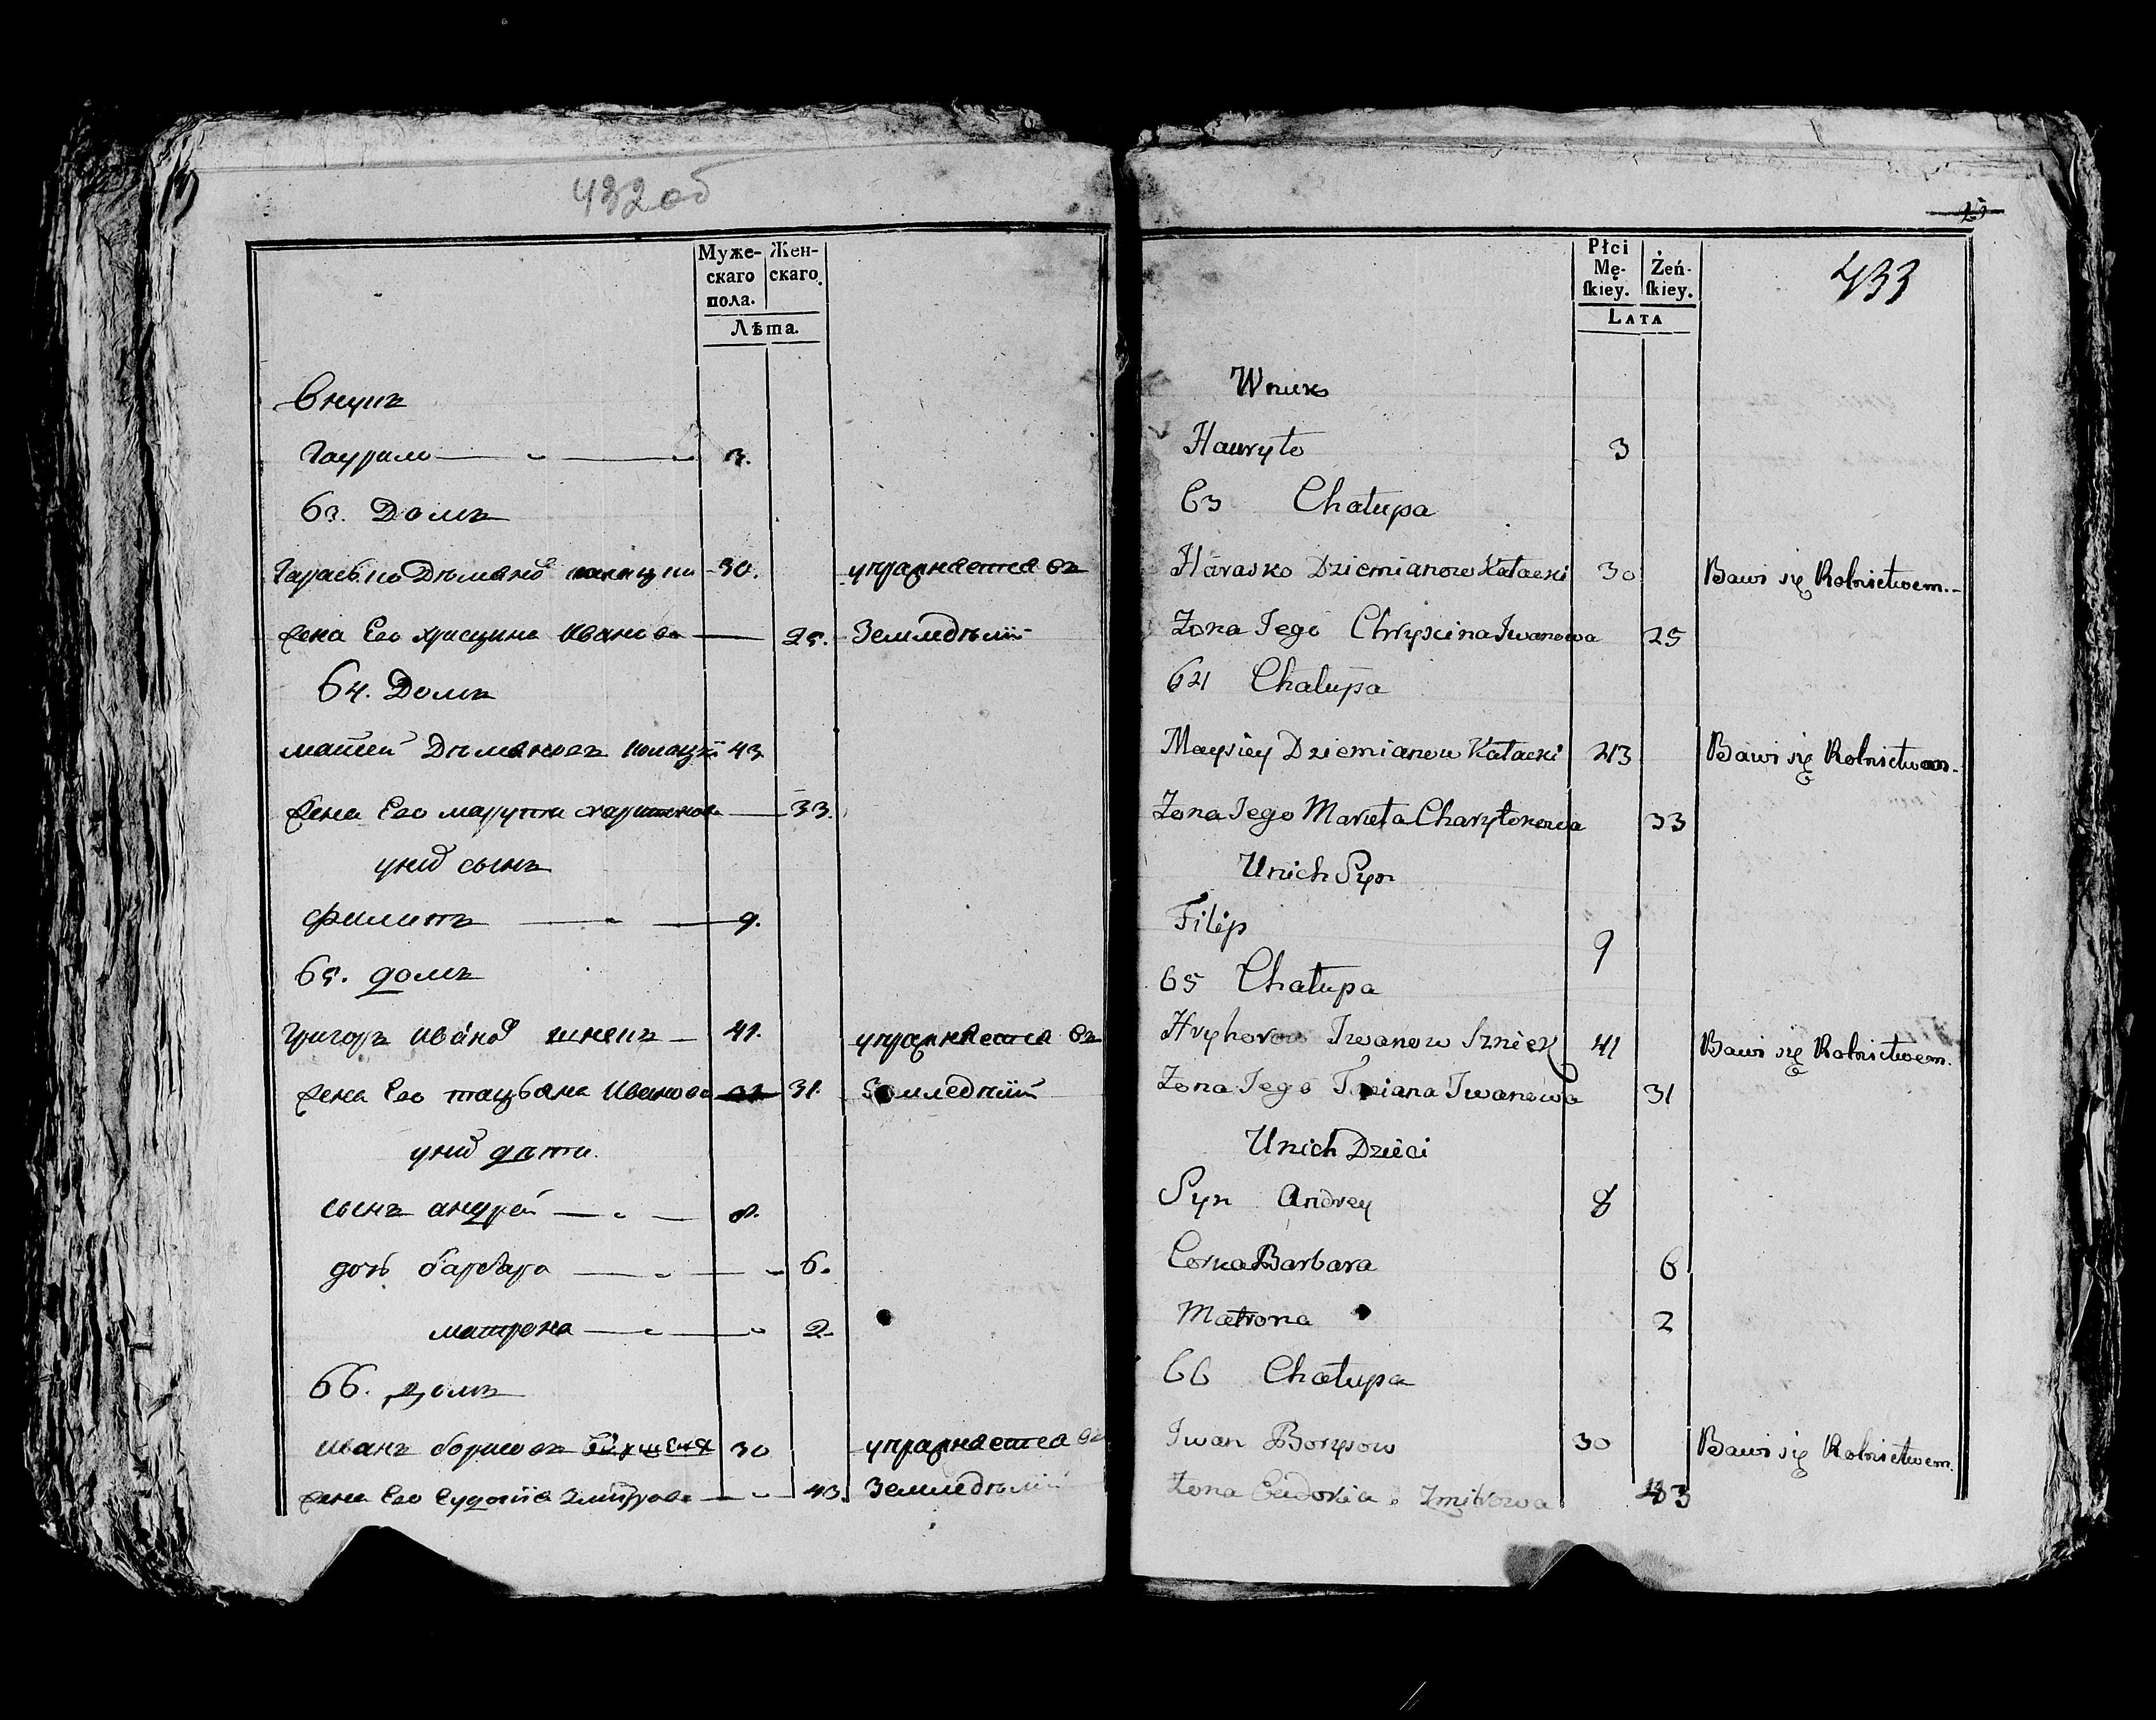 432об
Муже-
скаго
пола.
Жен-
скаго.
Лѣта.
Внукъ
Гаурило 3.
63. Домъ
Гарасько Дѣмяновъ 30. упражняется въ
жена Его Хрисцина Иванова 25. Земледѣліи
64. Домъ
Мойсей Дѣмяновъ Колацкі 43
жена Его марута харитонова 33.
у них сынъ
Филипъ 9.
65. домъ
Григоръ Иванов шнекъ 41. упражняется въ
жена Его тацьяна Иванова 31. Земледѣліи
у них дѣти.
сынъ андрей 8.
дочь барбара 6.
матрона 2.
66. домъ
иванъ борисовъ 30 упражняется въ
жена Его Еудокія Змитрова 43. Земледѣліи
25
433
Płci
Mę-
ſkiey.
Żeń-
ſkiey.
LATA
Wnuk
Hauryło 3
63 Chałupa
Harasko Dziemianow Kałacki 30 Bawi się Rolnictwem.
Żona Jego Chryscina Iwanowa 25
64 Chałupa
Maysiey Dziemianow Kałacki 43 Bawi się Rolnictwem.
Żona Jego Maruta Charytonowa 33
Unich Syn
Filip 9
65 Chałupa
Hryhorow Iwanow Szniek 41 Bawi się Rolnictwem.
Żona Jego Taciana Iwanowa 31
Unich Dzieci
Syn Andrey 8
Corka Barbara 6
Matrona 2
66 Chałupa
Iwan Borysow 30 Bawi się Rolnictwem.
Żona Eudokia Zmitrowa 43